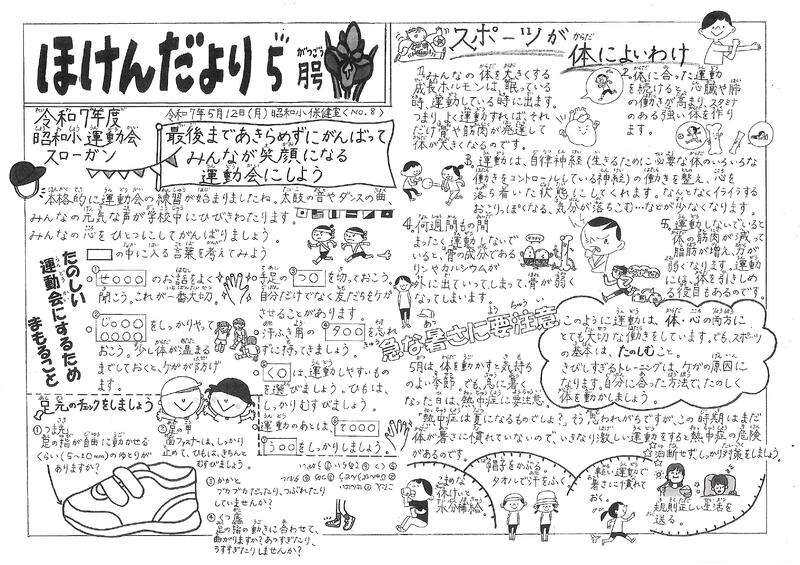 ほけんだより 5月号
令和7年5月12日(月) 昭和小 保健室 <No.8>
令和7年度
昭和小運動会
スローガン
最後まであきらめずにがんばって
みんなが笑顔になる
運動会にしよう
本格的に運動会の練習が始まりましたね。太鼓の音やダンスの曲、
みんなの元気な声が学校中にひびきわたります。
みんなの心をひとつにしてがんばりましょう。
□の中に入る言葉を考えてみよう
たのしい
運動会にするため
まもること
①せ○○○のお話をよく
聞こう。これが一番大切。
②じ○○○
○○○○をしっかりやって
おこう。少し体が温まる
までしておくと、ケガが防げ
ます。
③手足のつ○を切っておこう。
自分だけでなく友だちをケガ
させることがあります。
④汗ふき用のタ○○を忘れ
ずに持ってきましょう。
⑤く○は、運動しやすいもの
を選びましょう。ひもは、
しっかりむすびましょう。
運動のあとはて○○○
う○○をしっかりしましょう。
足元のチェックをしましょう
①つま先
足の指が自由に動かせる
くらい(5~10mm)のゆとりが
ありますか?
②足の甲
面ファスナーは、しっかり
止めて、ひもは、きちんと
むすびましょう。
③かかと
ブカブカだったり、つぶれたり
していませんか?
④くつ底
足の指の動きに合わせて、
曲がりますか?あつすぎたり、
うすすぎたりしませんか?
スポーツが体によいわけ
1.みんなの体を大きくする
成長ホルモンは、眠っている
時、運動している時に出ます。
つまり、よく運動すればそれ
だけ骨や筋肉が発達して
体が大きくなるのです。
2.体に合った運動
を続けると、心臓や肺
の働きが高まり、スタミナ
のある強い体を作り
ます。
3.運動は、自律神経(生きるために必要な体のいろいろな
働きをコントロールしている神経)の働きを整え、心を
落ち着いた状態にしてくれます。なんとなくイライラする
おこりっぽくなる、気分が落ちこむ…などが少なくなります。
4.何週間もの間
まったく運動しない
でいると、骨の成分である
リンやカルシウムが
外に出ていってしまって、骨が弱く
なってしまいます。
5.運動しないでいると
体の筋肉が減って
脂肪が増え、力が
弱くなります。運動
には、体を引きしめ
る役目もあるのです。
このように運動は、体・心の両方に
とても大切な働きをしています。でも、スポーツ
の基本は、たのしむこと。
きびしすぎるトレーニングは、ケガの原因に
なります。自分に合った方法で、たのしく
体を動かしましょう。
急な暑さに要注意
5月は、体を動かすと気持ち
のよい季節。でも、急に暑く
なった日は、熱中症に要注意。
「熱中症は夏になるものでしょ?」そう思われがちですが、この時期はまだ
体が暑さに慣れていないので、いきなり激しい運動をすると熱中症の危険
があるのです。
油断せずしっかり対策をしましょう
こまめな
休けいと
水分補給
帽子をかぶる。
タオルで汗をふく
軽い運動で
暑さに慣れて
おく。
規則正しい生活を
送る。